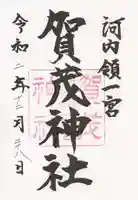 河内領一宮
賀茂神社
賀茂神社
令和二年十二月八日